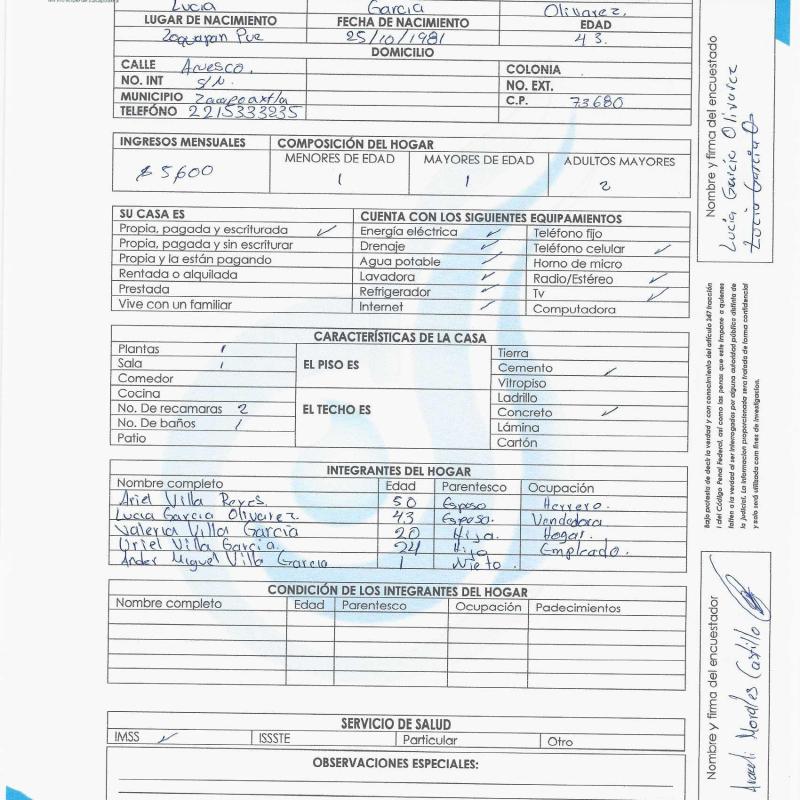 Lucia García Olivarez.
LUGAR DE NACIMIENTO FECHA DE NACIMIENTO EDAD
Zoquapan Pue 25/10/1981 43.
DOMICILIO
CALLE Anesco. COLONIA
NO. INT S/N. NO. EXT.
MUNICIPIO Zacapoaxtla C.P. 73680
TELEFÓNO 2215333235
INGRESOS MENSUALES COMPOSICIÓN DEL HOGAR
MENORES DE EDAD MAYORES DE EDAD ADULTOS MAYORES
$ 5,600 1 1 2
SU CASA ES CUENTA CON LOS SIGUIENTES EQUIPAMIENTOS
Propia, pagada y escriturada ✓ Energía eléctrica ✓ Teléfono fijo
Propia, pagada y sin escriturar Drenaje ✓ Teléfono celular ✓
Propia y la están pagando Agua potable ✓ Horno de micro
Rentada o alquilada Lavadora ✓ Radio/Estéreo ✓
Prestada Refrigerador ✓ Tv ✓
Vive con un familiar Internet ✓ Computadora
CARACTERÍSTICAS DE LA CASA
Plantas 1 Tierra
Sala 1 EL PISO ES Cemento ✓
Comedor Vitropiso
Cocina Ladrillo
No. De recamaras 2 EL TECHO ES Concreto ✓
No. De baños 1 Lámina
Patio Cartón
INTEGRANTES DEL HOGAR
Nombre completo Edad Parentesco Ocupación
Ariel Villa Reyes. 50 Esposo Herrero.
Lucia Garcia Olivarez 43 Esposa. Vendedora
Valeria Villa García 20 Hija. Hogar.
Uriel Villa Garcia. 24 Hijo Empleado.
Ander Miguel Villa Garcia 1 Nieto.
CONDICIÓN DE LOS INTEGRANTES DEL HOGAR
Nombre completo Edad Parentesco Ocupación Padecimientos
SERVICIO DE SALUD
IMSS ✓ ISSSTE Particular Otro
OBSERVACIONES ESPECIALES:
Nombre y firma del encuestado
Lucía García Olivarez
Lucia García O
Bajo protesta de decir la verdad y con conocimiento del artículo 247 fracción
I del Código Penal Federal, así como las penas que este impone a quienes
falten a la verdad al ser interrogados por alguna autoridad pública distinta de
la judicial. La información proporcionada sera tratada de forma confidencial
y solo será utilizada con fines de investigación.
Nombre y firma del encuestador
Araceli Morales Castillo